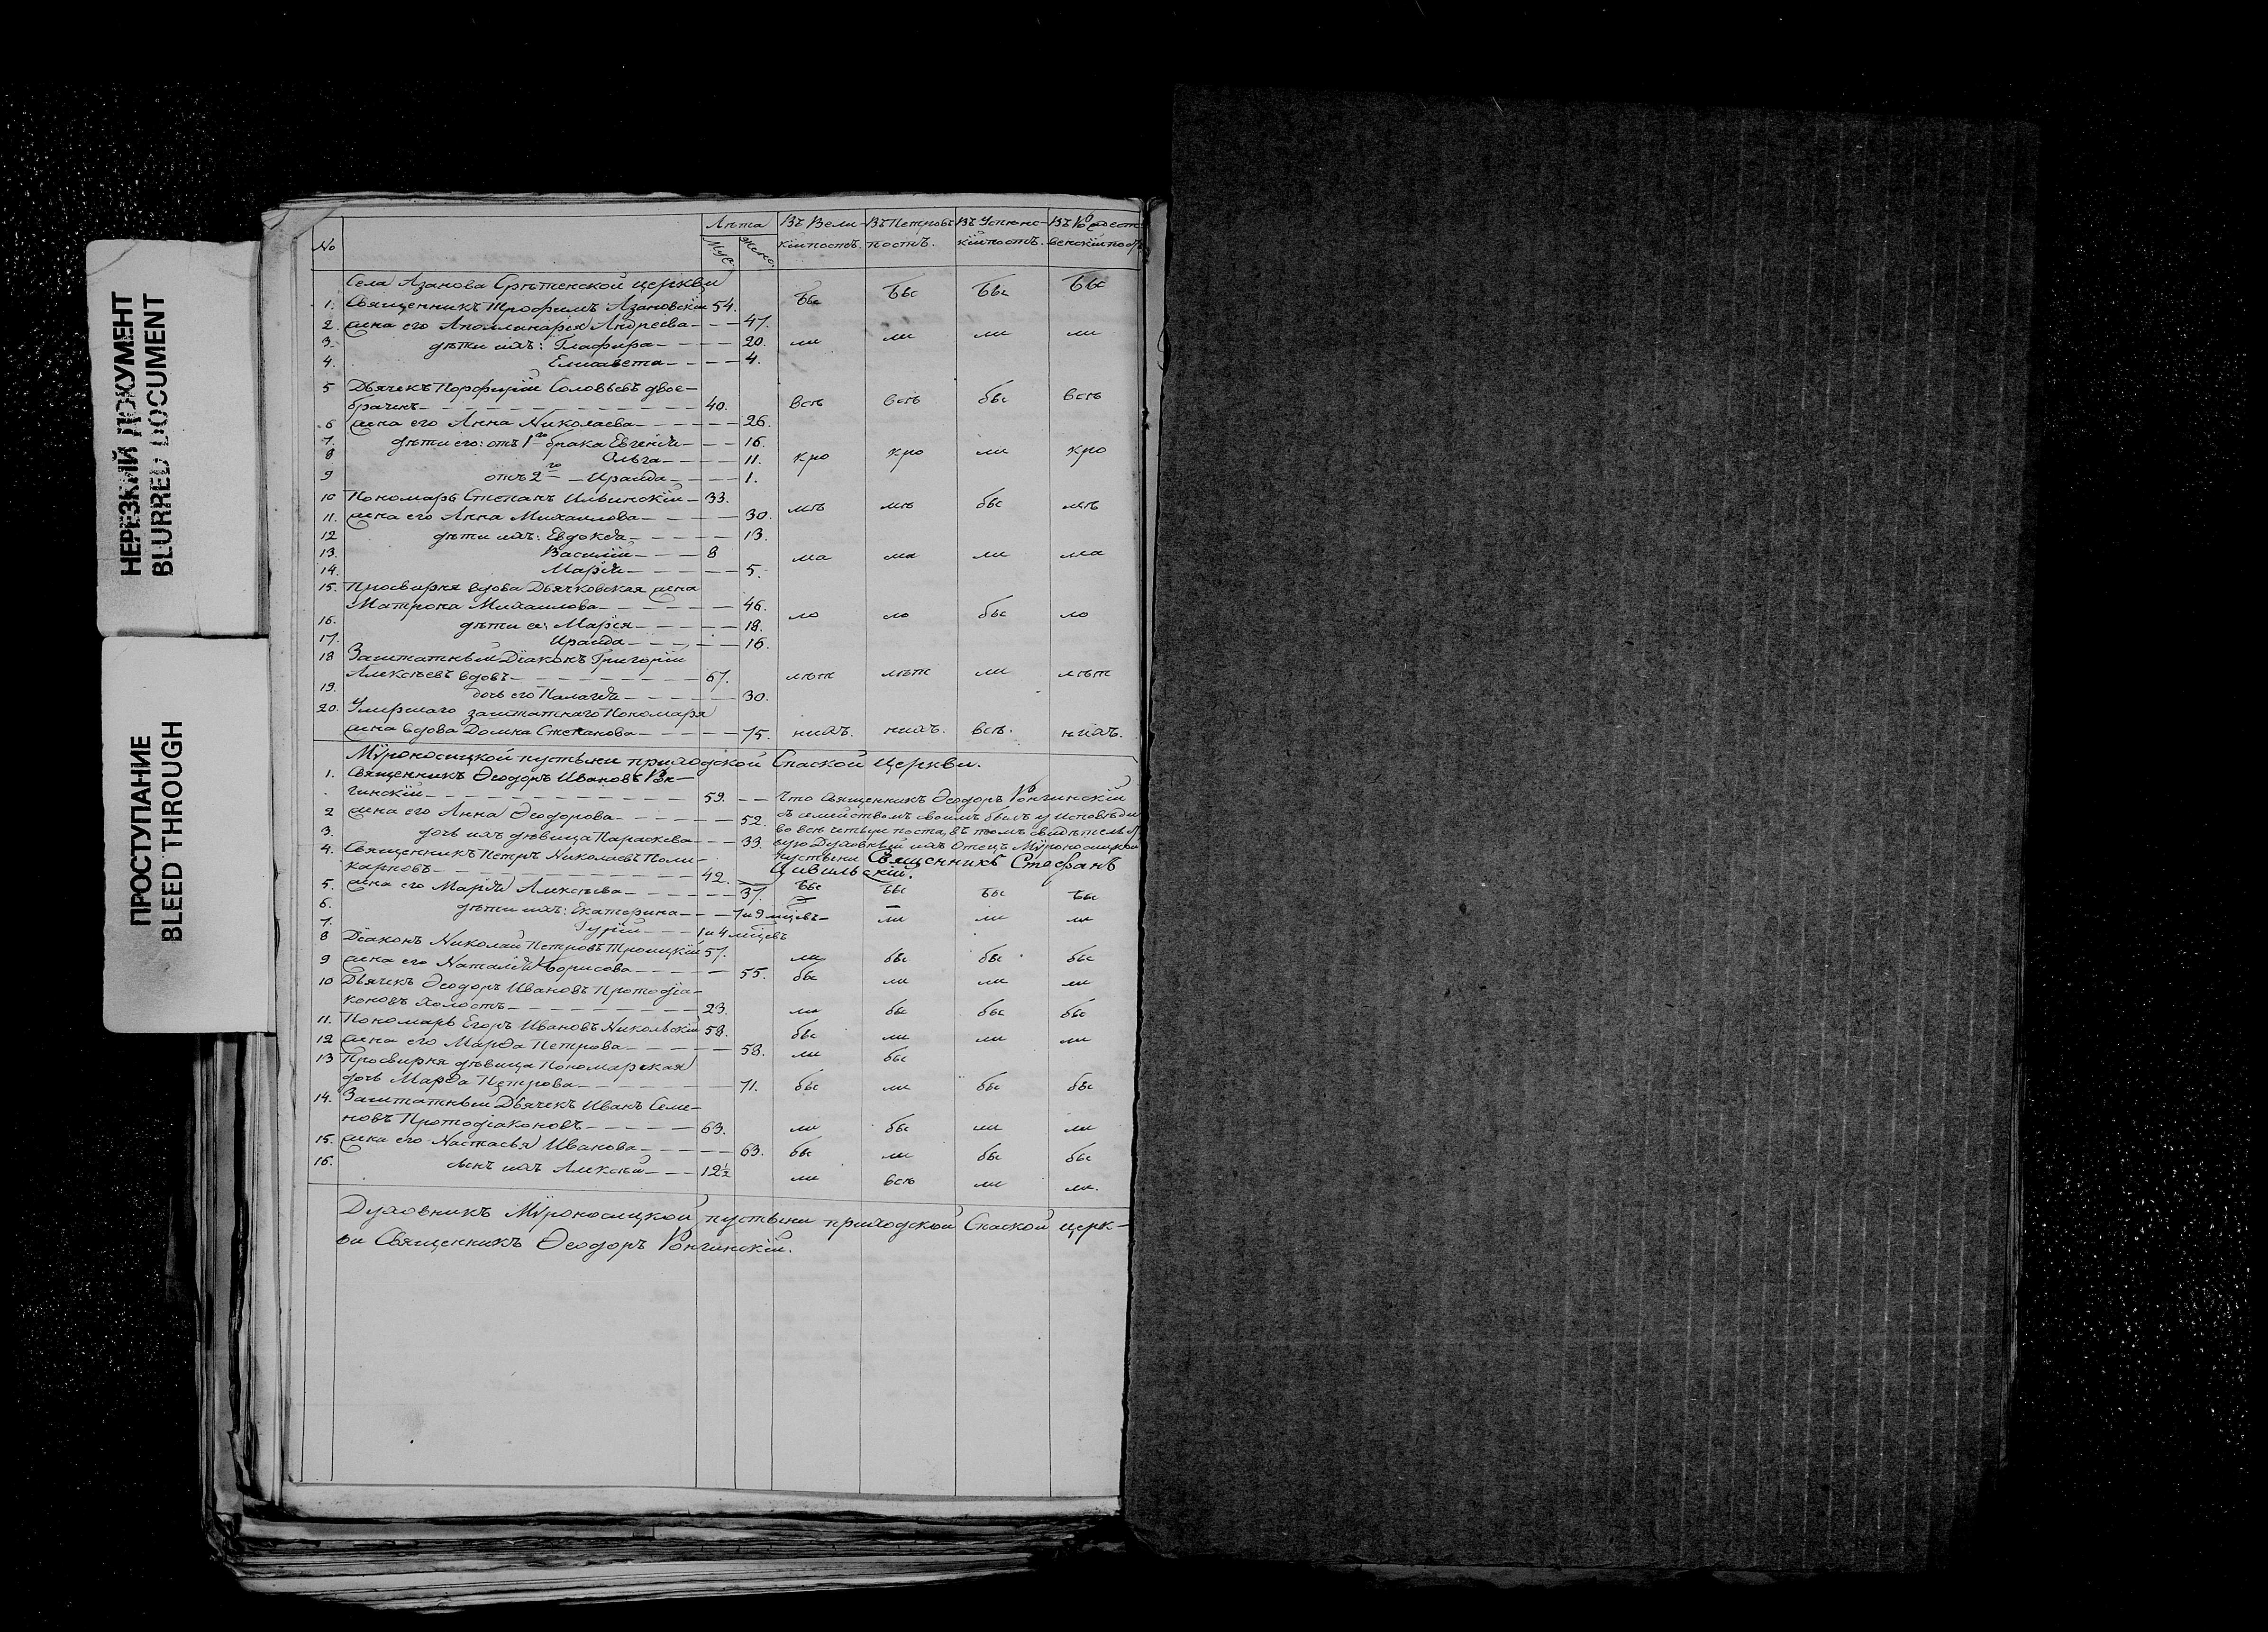 НЕРЕЗКИЙ ДОКУМЕНТ
BLURRED DOCUMENT
ПРОСТУПАНИЕ
BLEED THROUGH
№ Лѣта Муж. Женс. Въ Великій постъ. Въ Петровъ постъ. Въ Успенскій постъ. Въ Рождественскій постъ
Села Азанова Срѣтенской церкви
1. Священникъ Трофимъ Азановскій 54. бы бы бы бы
2. жена его Аполлинарія Андреева 47.
3. дѣти ихъ: Глафира 20. ли ли ли ли
4. Елисавета 4.
5 Дьячекъ Порфирій Соловьевъ двое-
браченъ 40. всѣ всѣ бы всѣ
6 жена его Анна Николаева 26.
7. дѣти его: отъ 1го брака Евгенія 16.
8 Ольга 11. кро кро ли кро
9 отъ 2го Ираида 1.
10 Пономарь Степанъ Ильинскій 33.
11. жена его Анна Михаилова 30. мѣ мѣ бы мѣ
12 дѣти ихъ: Евдокія 13.
13. Василій 8 ма ма ли ма
14. Марія 5.
15. Просвирня вдова Дьячковская жена
Матрона Михаилова 46.
16. дѣти ея: Марія 18. ло ло бы ло
17. Ираида 16.
18 Заштатный Діаконъ Григорій
Алексѣевъ вдовъ 67. лѣт лѣт ли лѣт
19. дочь его Палагія 30.
20. Умершаго заштатнаго Пономаря
жена вдова Домна Степанова 75. нихъ. нихъ. всѣ. нихъ.
Мѵроносицкой пустыни приходской Спаской церкви.
1. Священникъ Ѳеодоръ Ивановъ Рон-
гинскій 59. Что Священникъ Ѳеодоръ Ронгинскій
2 жена его Анна Ѳеодорова 52. съ семействомъ своимъ былъ у исповѣди
3. дочь ихъ дѣвица Параскева 33. во всѣ четыре поста, въ томъ свидѣтельст
4. Священникъ Петръ Николаевъ Поли- вую Духовный ихъ Отецъ Мѵроносицкой
карповъ 42. пустыни Священникъ Стефанъ
Цивильскій.
5. жена его Марія Алексѣева 37. бы бы бы бы
6. дѣти ихъ: Екатерина 7 и 9 мцевъ ли ли ли
7. Гурій 1 и 4 мцевъ
8 Діаконъ Николай Петровъ Троицкій 57. ли бы бы бы
9 жена его Наталія Борисова 55. бы ли ли ли
10 Дьячекъ Ѳеодоръ Ивановъ Протодіа-
коновъ холостъ 23. ли бы бы бы
11. Пономарь Егоръ Ивановъ Никольскій 58. бы ли ли ли
12 жена его Марѳа Петрова 58. ли бы
13 Просвирня дѣвица Пономарская
дочь Марѳа Петрова 71. бы ли бы бы
14. Заштатный Дьячекъ Иванъ Семе-
новъ Протодіаконовъ 63. ли бы ли ли
15. жена его Настасья Иванова 63. бы ли бы бы
16. сынъ ихъ Алексѣй 12½ ли всѣ ли ли.
Духовникъ Мѵроносицкой пустыни приходской Спаской церк-
ви Священникъ Ѳеодоръ Ронгинскій.